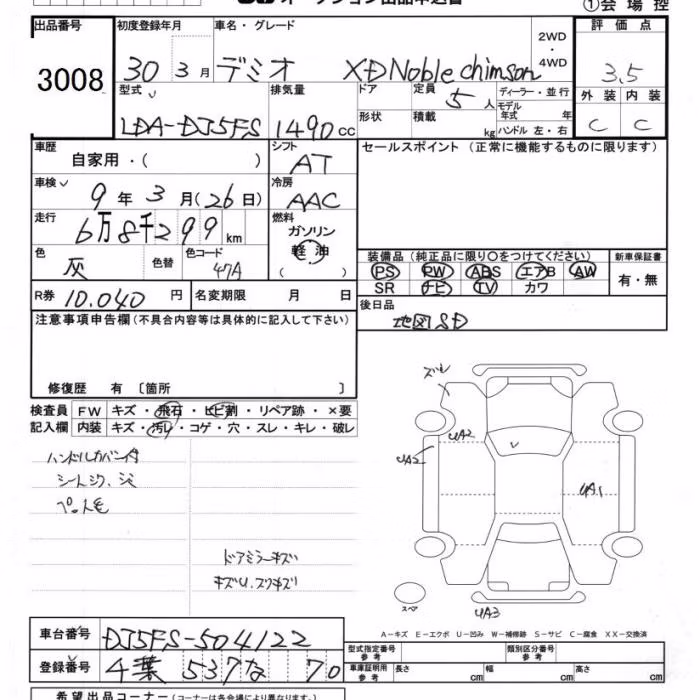 ①会場控
出品番号
3008
初度登録年月
30 3月
車名・グレード
デミオ XD Noble chimson
2WD
・
4WD
評価点
3,5
外装 内装
C C
型式
LDA-DJ5FS
排気量
1490cc
ドア
形状
定員
5人
積載
kg
ディーラー・並行
モデル年式 年
ハンドル 左・右
車歴
自家用・( )
シフト
AT
セールスポイント (正常に機能するものに限ります)
車検
9年3月(26日)
冷房
AAC
走行
6万8千299km
燃料
ガソリン
軽油
( )
色
灰
色替
色コード
47A
装備品(純正品に限り〇をつけてください)
PS PW ABS エアB AW
SR ナビ TV カワ
新車保証書
有・無
R券 10.040円
名変期限 月 日
後日品
地図SD
注意事項申告欄(不具合内容等は具体的に記入して下さい)
修復歴 有〔箇所 〕
検査員
記入欄
FW キズ・飛石・ヒビ割・リペア跡・×要
内装 キズ・汚レ・コゲ・穴・スレ・キレ・破レ
ハンドルカバー付
シートシワ、シミ
ペット毛
ドアミラーキズ
キズU.スリキズ
UA2
UA2
UA1
UA3
スペア
A-キズ E-エクボ U-凹み W-補修跡 S-サビ C-腐食 XX-交換済
車台番号 DJ5FS-504122
登録番号 千葉 537な 70
型式指定番号
参考
類別区分番号
車庫証明用
参考
長さ cm 幅 cm 高さ cm
希望出品コーナー(各会場により異なります)